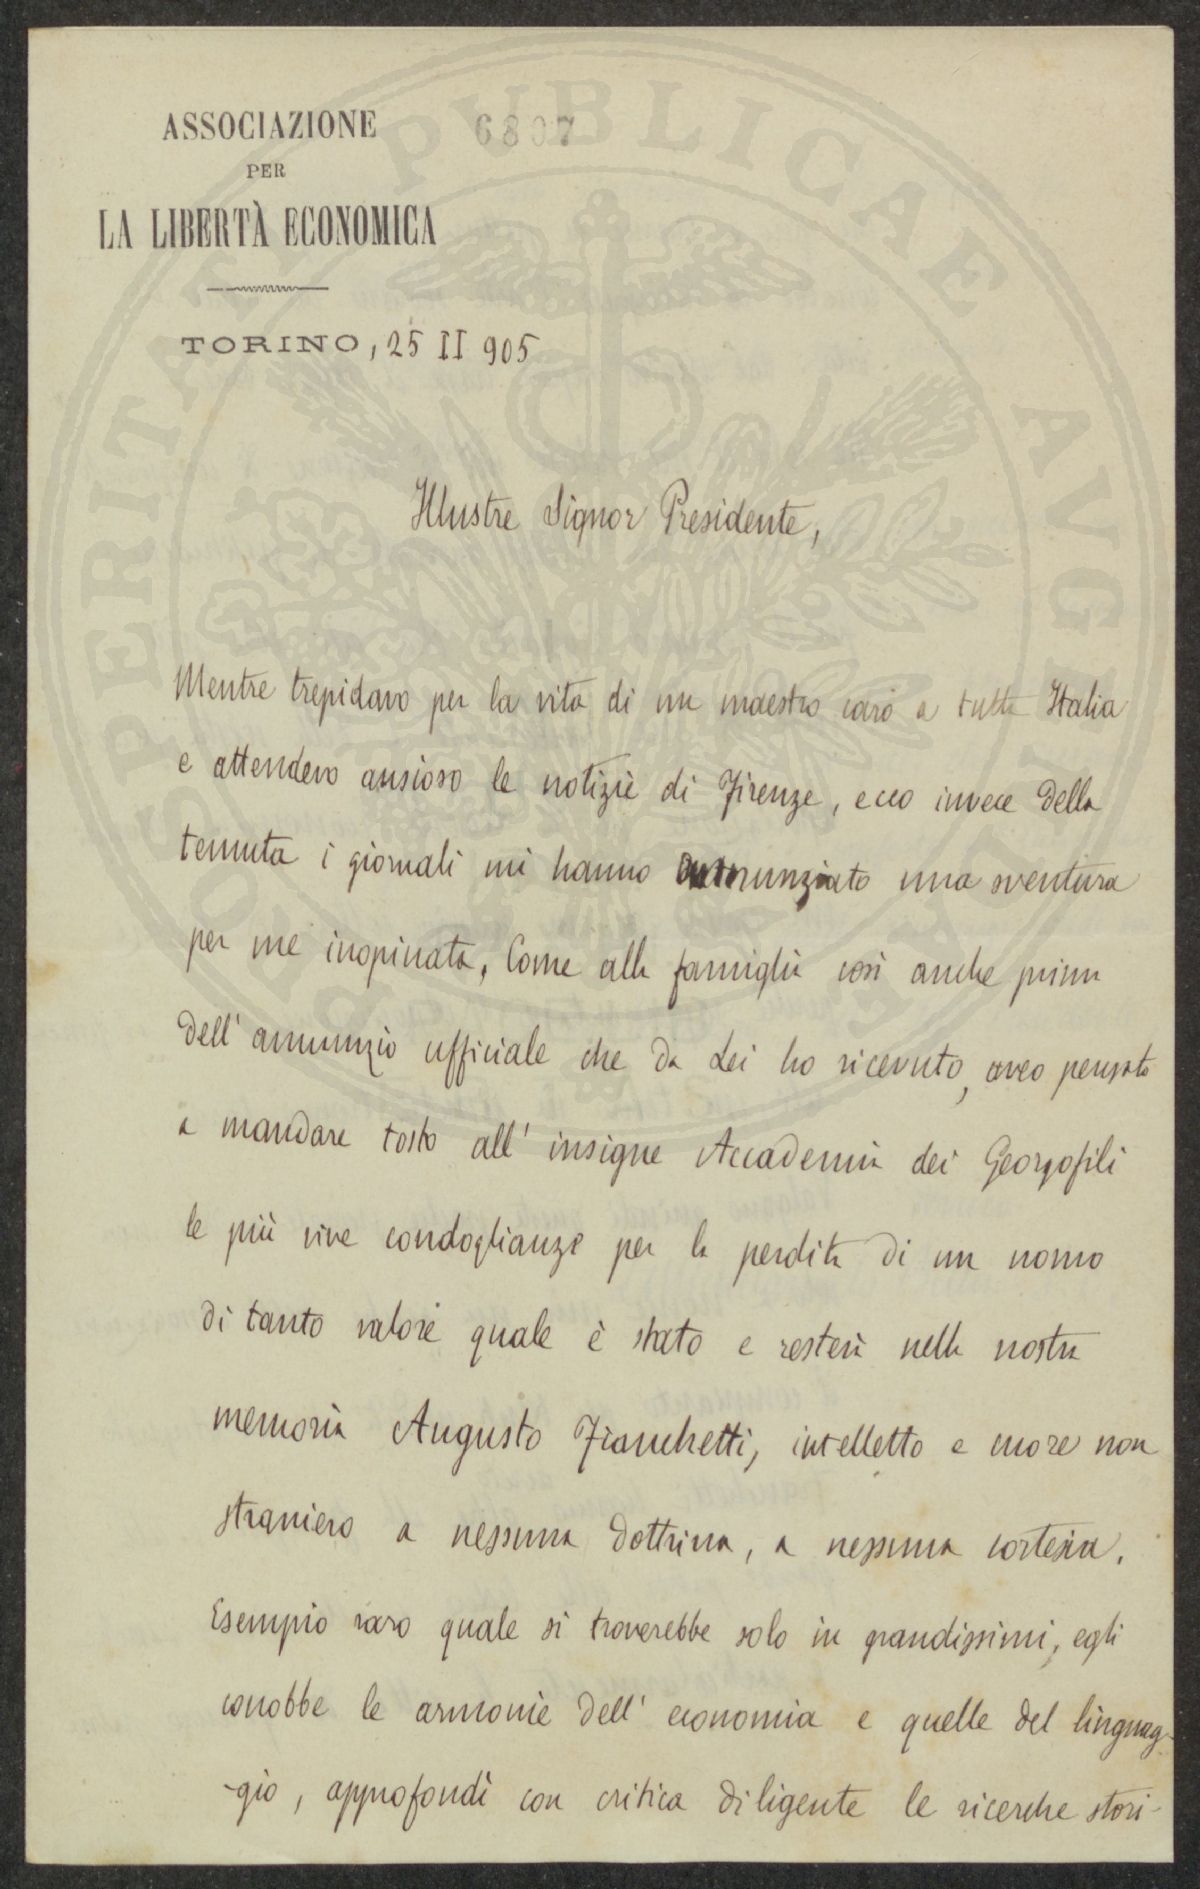 ASSOCIAZIONE
PER
LA LIBERTÀ ECONOMICA
6807
TORINO, 25 II 905
PROSPERITATI PUBLICAE AUGENDAE
Illustre Signor Presidente,
Mentre trepidavo per la vita di un maestro caro a tutta Italia
e attendevo ansioso le notizie di Firenze, ecco invece della
temuta i giornali mi hanno annunziato una sventura
per me inopinata. Come alla famiglia così anche prima
dell'annunzio ufficiale che da Lei ho ricevuto, avevo pensato
a mandare tosto all'insigne Accademia dei Georgofili
le più vive condoglianze per la perdita di un uomo
di tanto valore quale è stato e resterà nella nostra
memoria Augusto Franchetti, intelletto e cuore non
straniero a nessuna dottrina, a nessuna cortesia.
Esempio raro quale si troverebbe solo in grandissimi, egli
conobbe le armonie dell'economia e quelle del linguag-
-gio, approfondì con critica diligente le ricerche stori-